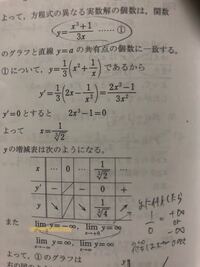 よって，方程式の異なる実数解の個数は，関数
y=(x³+1)/3x ……①
のグラフと直線 y=a の共有点の個数に一致する。
①について，y=1/3(x²+1/x)であるから
y′=1/3(2x−1/x²)=(2x³−1)/3x²
y′=0とすると 2x³−1=0
よって x=1/∛2
yの増減表は次のようになる。
x … 0 … 1/∛2 …
y′ − − 0 +
y ↘ ↘ 1/∛4 ↗
また lim y=−∞, lim y=∞
lim y=∞, lim y=∞
よって，①のグラフは